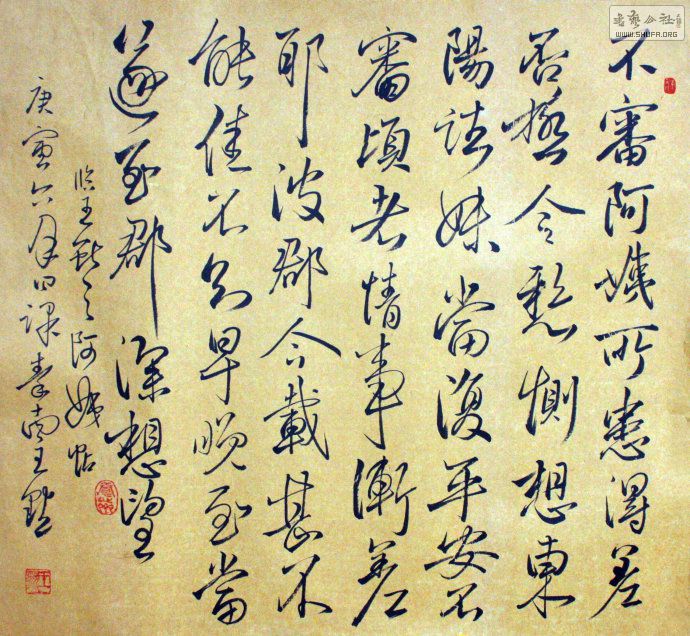 不審阿姨所患得差
否極令懸惻想東
陽諸妹當復平安不
審頃者情事漸差
耶彼郡今載甚不
能佳不知早晚至當
遂至郡深想望
臨王獻之阿姨帖
庚寅六月日課秦南王
書藝公社
WWW.SHUFA.ORG